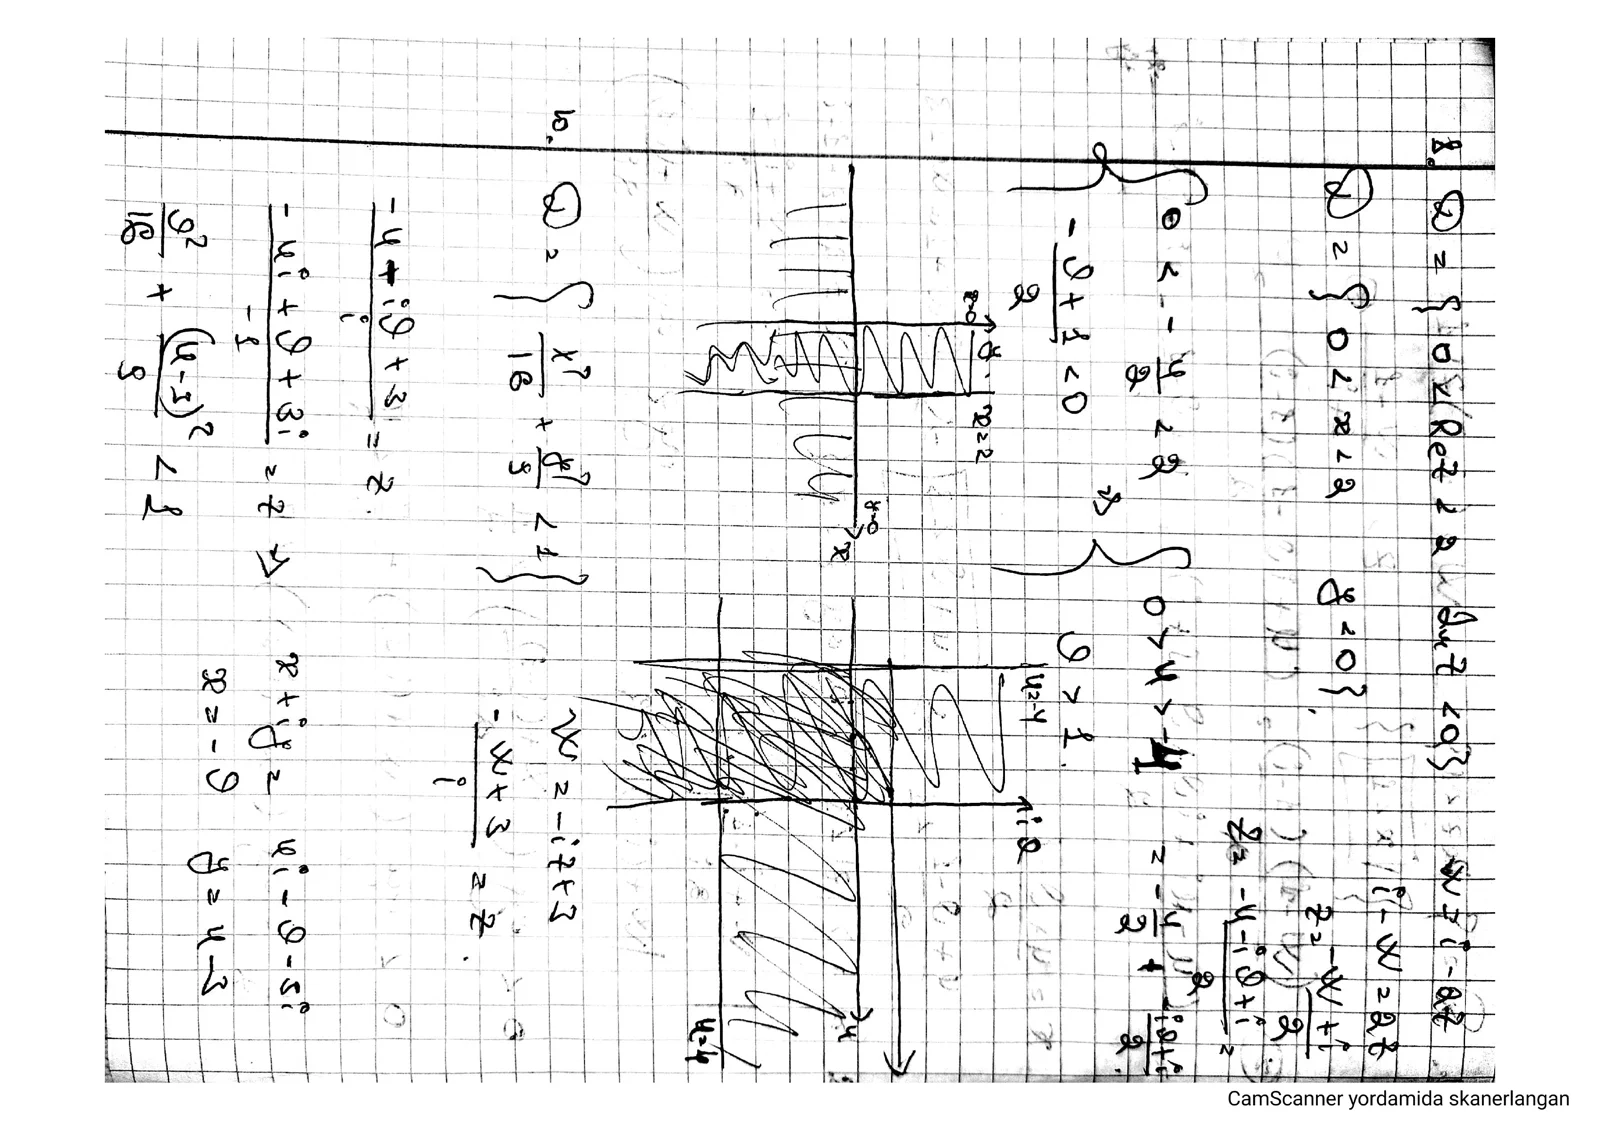 8. D = { 0 < Re z < 2 Im z < 0} w = i - 2z
D = { 0 < x < 2 y < 0}. i - w = 2z
z = \frac{-w + i}{2}
0 < -\frac{u}{2} < 2 ⇒ 0 > u > -4
z = \frac{-u - iϑ + i}{2} =
= -\frac{u}{2} + \frac{iϑ + i}{2}.
\frac{-ϑ + 1}{2} < 0 ϑ > 1.
x=0 y x=2 y=0 x
u=-4 iϑ u u=4
10. D = { \frac{x^2}{16} + \frac{y^2}{9} < 1 } w = -iz + 3
\frac{-w + 3}{i} = z.
\frac{-u + iϑ + 3}{i} = z.
\frac{-ui + ϑ + 3i}{-1} = z ⇒ x + iy = ui - ϑ - 3i
x = -ϑ y = u - 3
\frac{ϑ^2}{16} + \frac{(u-3)^2}{9} < 1
CamScanner yordamida skanerlangan